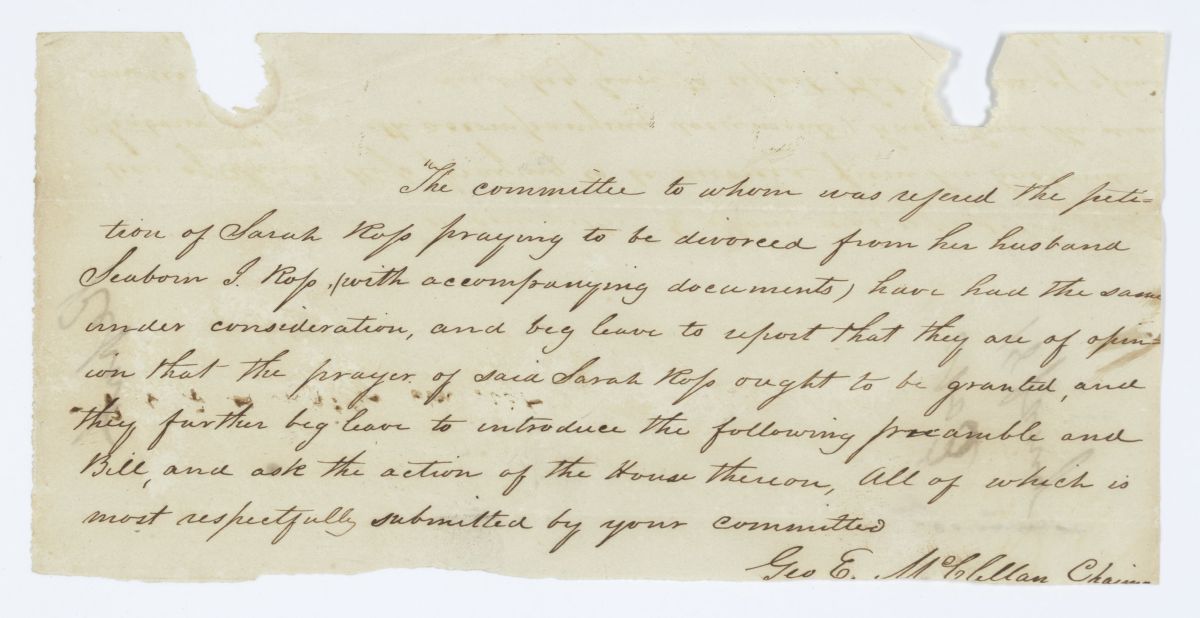 "The committee to whom was refered the peti=
tion of Sarah Ross praying to be divorced from her husband
Seaborn J. Ross, (with accompanying documents) have had the same
under consideration, and beg leave to report that they are of opin=
ion that the prayer of said Sarah Ross ought to be granted, and
they further beg leave to introduce the following preamble and
Bill, and ask the action of the House thereon, All of which is
most respectfully submitted by your committee
Geo E. McClellan Chairm